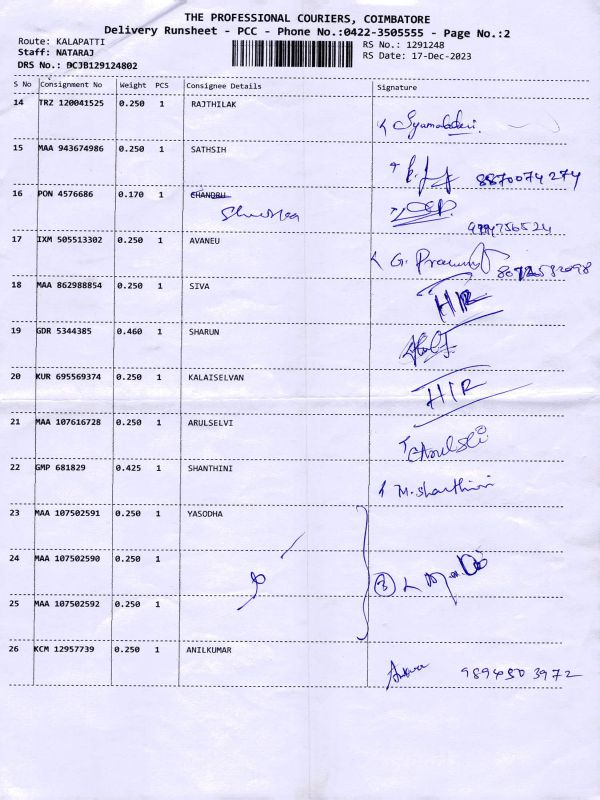 THE PROFESSIONAL COURIERS, COIMBATORE
Delivery Runsheet - PCC - Phone No.:0422-3505555 - Page No.:2
Route: KALAPATTI
Staff: NATARAJ
DRS No.: DCJB129124802
RS No.: 1291248
RS Date: 17-Dec-2023
S No Consignment No Weight PCS Consignee Details Signature
14 TRZ 120041525 0.250 1 RAJTHILAK
15 MAA 943674986 0.250 1 SATHSIH 8870074274
16 PON 4576686 0.170 1 CHANDRU
17 IXM 505513302 0.250 1 AVANEU
18 MAA 862988854 0.250 1 SIVA
19 GDR 5344385 0.460 1 SHARUN
20 KUR 695569374 0.250 1 KALAISELVAN
21 MAA 107616728 0.250 1 ARULSELVI
22 GMP 681829 0.425 1 SHANTHINI M. Shanthini
23 MAA 107502591 0.250 1 YASODHA
24 MAA 107502590 0.250 1
25 MAA 107502592 0.250 1
26 KCM 12957739 0.250 1 ANILKUMAR 9894503972